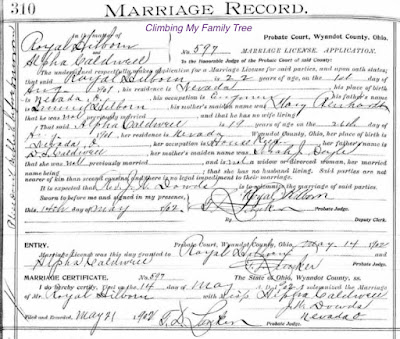 310
MARRIAGE RECORD.
Climbing My Family Tree
In the matter of
Royal Hilborn
Alpha Caldwell
Probate Court, Wyandot County, Ohio.
No. 597 MARRIAGE LICENSE, APPLICATION.
To the Honorable Judge of the Probate Court of said County:
The undersigned respectfully makes application for a Marriage License for said parties, and upon oath states;
That said Royal Hilborn is 22 years of age, on the 1st day of
Aug 1901, his residence is Nevada his place of birth
is Nevada, O his occupation is his father's name
is Hilborn his mother's maiden name was Mary
that he was not previously married and that he has no wife living.
That said Alpha Caldwell is 19 years of age, on the day of
190 her residence is Nevada Wyandot County, Ohio, her place of birth is
Nevada, O her occupation is her father's name is
Caldwell her mother's maiden name was Doyle
that she was not previously married and is not a widow or divorced woman, her married
name being that she has no husband living. Said parties are not
nearer of kin than second cousins, and there is no legal impediment to their marriage.
It is expected that Rev. J. H. Dowds is to solemnize the marriage of said parties.
Sworn to before me and signed in my presence, Royal Hilborn
this 14th day of May 1902
Probate Judge.
By Deputy Clerk.
ENTRY. Probate Court, Wyandot County, Ohio, May 14 1902
Marriage License was this day granted to Royal Hilborn and
Alpha Caldwell
Probate Judge.
MARRIAGE CERTIFICATE. No. 597 The State of Ohio, Wyandot County, ss.
I do hereby certify, That on the 14 day of May 1902 I solemnized the Marriage
of Mr. Royal Hilborn with Miss Alpha Caldwell
J. H. Dowds
Filed and Recorded May 21 1902 Nevada O
Probate Judge.